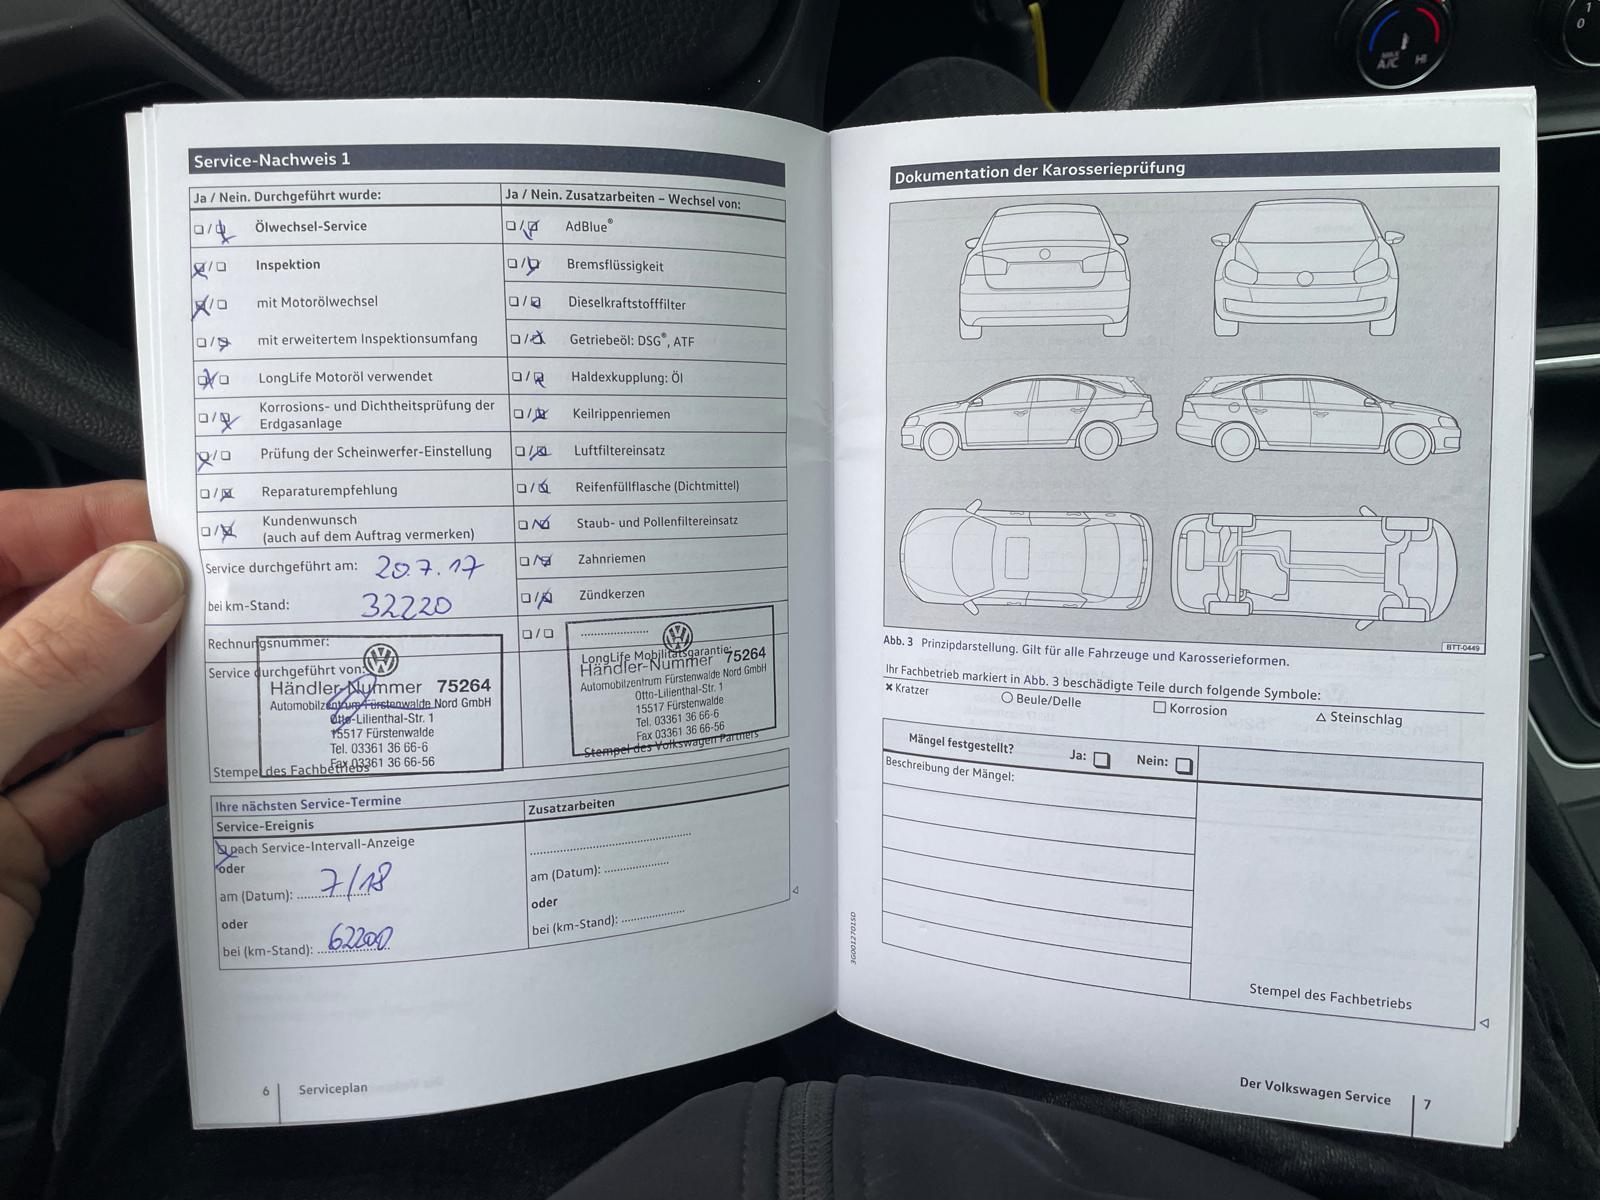 Service-Nachweis 1
Ja / Nein. Durchgeführt wurde:
Ölwechsel-Service
Inspektion
mit Motorölwechsel
mit erweitertem Inspektionsumfang
LongLife Motoröl verwendet
Korrosions- und Dichtheitsprüfung der
Erdgasanlage
Prüfung der Scheinwerfer-Einstellung
Reparaturempfehlung
Kundenwunsch
(auch auf dem Auftrag vermerken)
Service durchgeführt am: 20.7.17
bei km-Stand: 32220
Rechnungsnummer:
Service durchgeführt von:
Händler-Nummer 75264
Automobilzentrum Fürstenwalde Nord GmbH
Otto-Lilienthal-Str. 1
15517 Fürstenwalde
Tel. 03361 36 66-6
Fax 03361 36 66-56
Stempel des Fachbetriebs
Ja / Nein. Zusatzarbeiten – Wechsel von:
AdBlue®
Bremsflüssigkeit
Dieselkraftstofffilter
Getriebeöl: DSG®, ATF
Haldexkupplung: Öl
Keilrippenriemen
Luftfiltereinsatz
Reifenfüllflasche (Dichtmittel)
Staub- und Pollenfiltereinsatz
Zahnriemen
Zündkerzen
LongLife Mobilitätsgarantie:
Händler-Nummer 75264
Automobilzentrum Fürstenwalde Nord GmbH
Otto-Lilienthal-Str. 1
15517 Fürstenwalde
Tel. 03361 36 66-6
Fax 03361 36 66-56
Stempel des Volkswagen Partners
Ihre nächsten Service-Termine
Service-Ereignis
nach Service-Intervall-Anzeige
oder
am (Datum): 7/18
oder
bei (km-Stand): 62200
Zusatzarbeiten
am (Datum):
oder
bei (km-Stand):
6 Serviceplan
Dokumentation der Karosserieprüfung
BTT-0449
Abb. 3 Prinzipdarstellung. Gilt für alle Fahrzeuge und Karosserieformen.
Ihr Fachbetrieb markiert in Abb. 3 beschädigte Teile durch folgende Symbole:
× Kratzer ○ Beule/Delle □ Korrosion △ Steinschlag
Mängel festgestellt? Ja: Nein:
Beschreibung der Mängel:
Stempel des Fachbetriebs
3G0012701SD
Der Volkswagen Service 7
MAX
A/C
HI
1
0